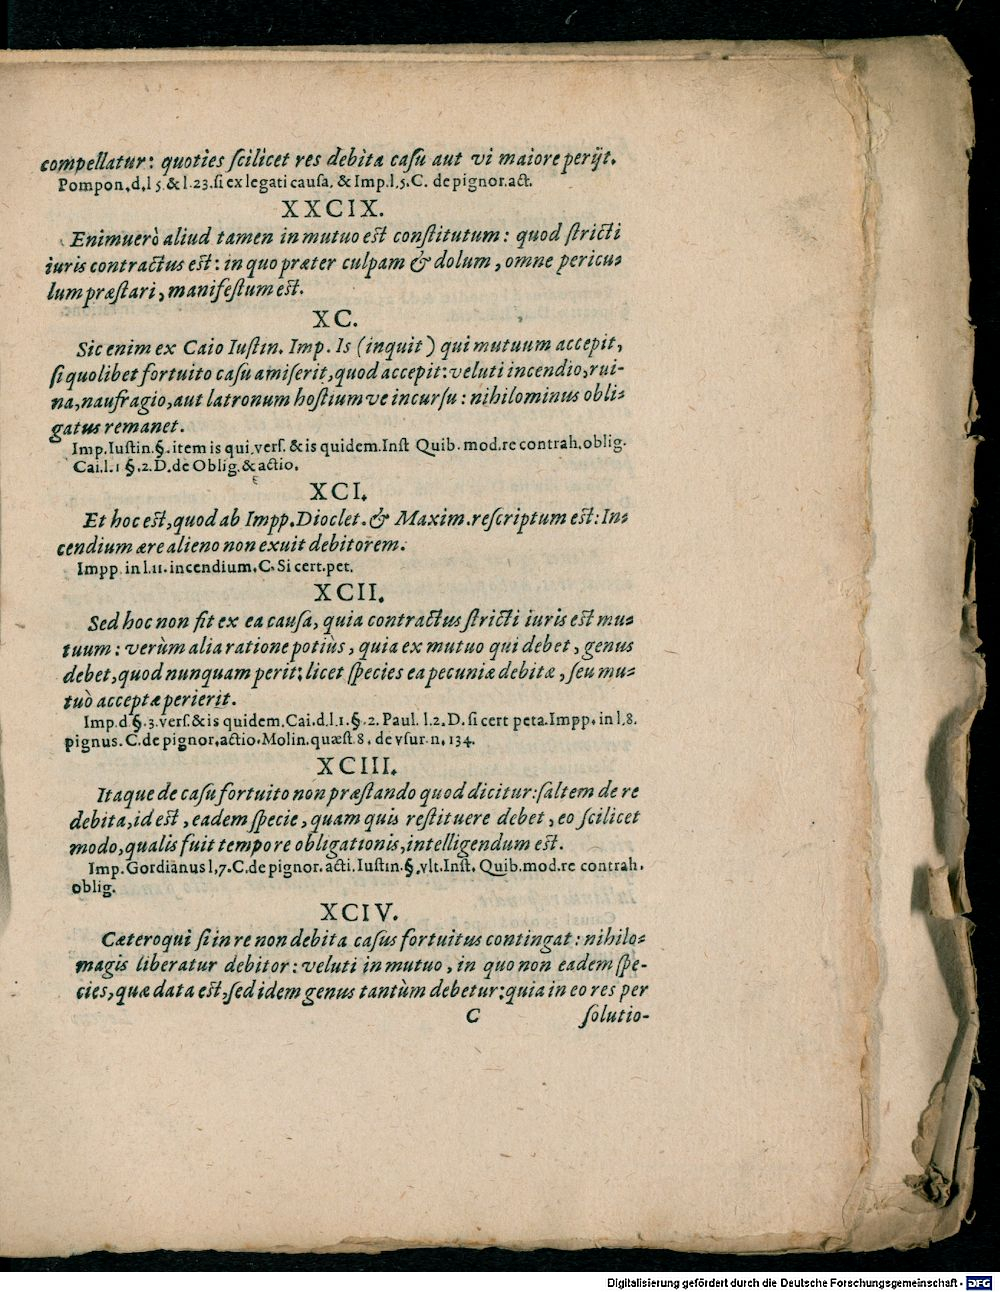 compellatur: quoties ſcilicet res debita caſu aut vi maiore perijt.
Pompon. d. l 5. & l. 23. ſi ex legati cauſa. & Imp. l. 5. C. de pignor. act.
XXCIX.
Enimuerò aliud tamen in mutuo eſt conſtitutum: quod ſtricti
iuris contractus eſt: in quo præter culpam & dolum, omne pericu-
lum præſtari, manifeſtum eſt.
XC.
Sic enim ex Caio Iuſtin. Imp. Is (inquit) qui mutuum accepit,
ſi quolibet fortuito caſu amiſerit, quod accepit: veluti incendio, rui-
na, naufragio, aut latronum hoſtium ve incurſu: nihilominus obli-
gatus remanet.
Imp. Iuſtin. §. item is qui. verſ. & is quidem. Inſt Quib. mod. re contrah. oblig.
Cai. l. 1 §. 2. D. de Oblig. & actio.
XCI.
Et hoc eſt, quod ab Impp. Dioclet. & Maxim. reſcriptum eſt: In-
cendium ære alieno non exuit debitorem.
Impp. in l. 11. incendium. C. Si cert. pet.
XCII.
Sed hoc non fit ex ea cauſa, quia contractus ſtricti iuris eſt mu-
tuum: verùm alia ratione potiùs, quia ex mutuo qui debet, genus
debet, quod nunquam perit: licet ſpecies ea pecuniæ debitæ, ſeu mu-
tuò acceptæ perierit.
Imp. d §. 3. verſ. & is quidem. Cai. d. l. 1. §. 2. Paul. l. 2. D. ſi cert peta. Impp. in l. 8.
pignus. C. de pignor. actio. Molin. quæſt 8. de vſur. n. 134.
XCIII.
Itaque de caſu fortuito non præſtando quod dicitur: ſaltem de re
debita, id eſt, eadem ſpecie, quam quis reſtituere debet, eo ſcilicet
modo, qualis fuit tempore obligationis, intelligendum eſt.
Imp. Gordianus l, 7. C. de pignor. acti. Iuſtin. §. vlt. Inſt. Quib. mod. re contrah.
oblig.
XCIV.
Cæteroqui ſi in re non debita caſus fortuitus contingat: nihilo-
magis liberatur debitor: veluti in mutuo, in quo non eadem ſpe-
cies, quæ data eſt, ſed idem genus tantùm debetur: quia in eo res per
C ſolutio-
Digitalisierung gefördert durch die Deutsche Forschungsgemeinschaft - DFG